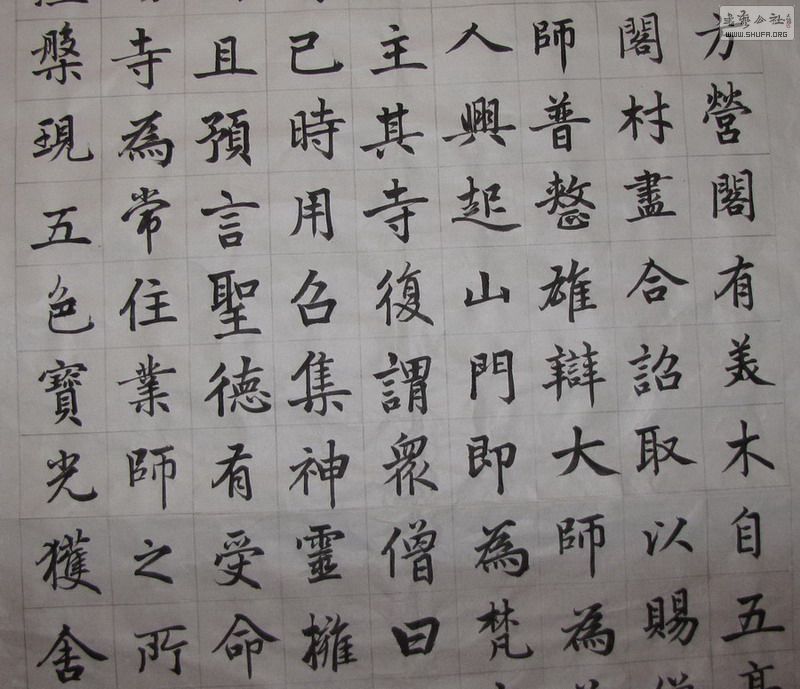 方營閣有美木自五
閣材盡合詔取以賜
師普整雄辯大師為
人興起山門即為梵
主其寺復謂眾僧曰
已時用召集神靈擁
且預言聖德有受命
寺為常住業師之所
槃現五色寶光獲舍
WWW.SHUFA.ORG